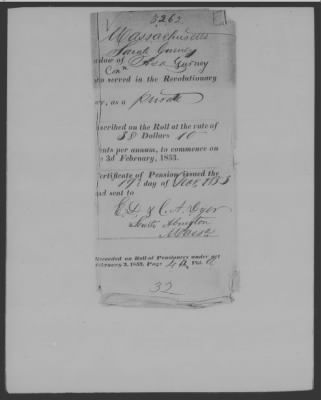 3262
Massachusetts
Sarah Gurney
idow of Asa Gurney
Con
o served in the Revolutionary
ar, as a private
nscribed on the Roll at the rate of
38 Dollars 10
ents per annum, to commence on
e 3d February, 1853.
Certificate of Pension issued the
19 day of
nd sent to
E.D. & C.A. Dyer
South Abington
Mass
Recorded on Roll of Pensioners under act
February 3, 1853. Page Vol.
32